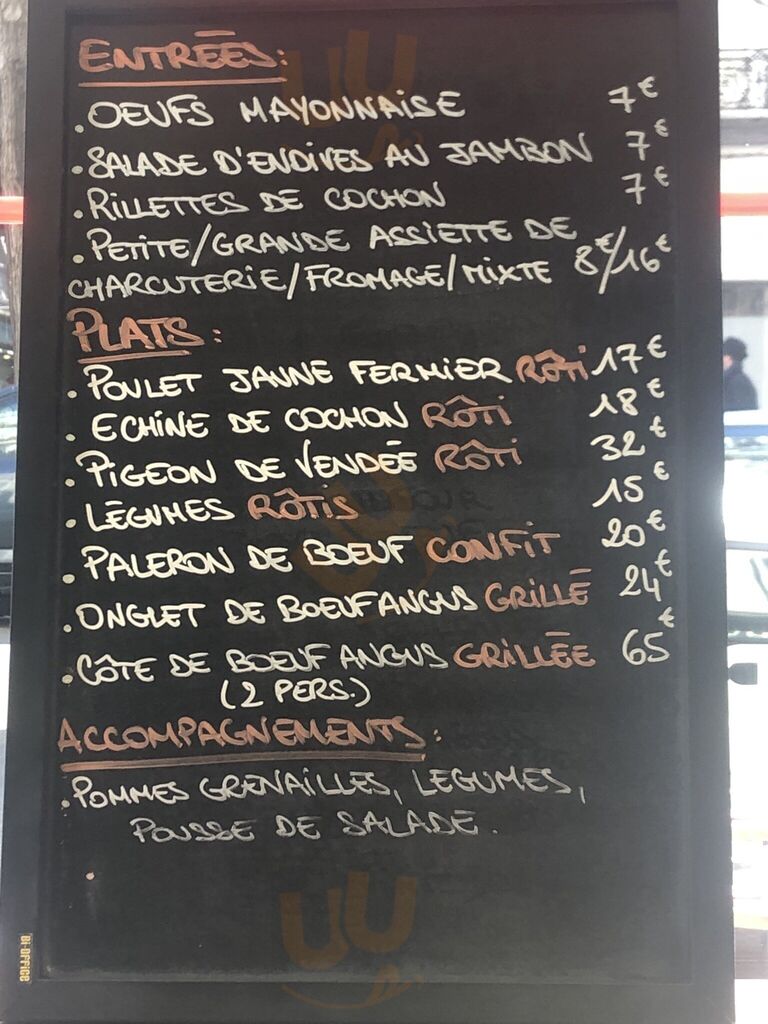 ENTRÉES:
.OEUFS MAYONNAISE 7€
.SALADE D'ENDIVES AU JAMBON 7€
.RILLETTES DE COCHON 7€
.PETITE/GRANDE ASSIETTE DE
CHARCUTERIE/FROMAGE/MIXTE 8€/16€
PLATS:
.POULET JAUNE FERMIER RÔTI 17€
.ECHINE DE COCHON RÔTI 18€
.PIGEON DE VENDÉE RÔTI 32€
.LÉGUMES RÔTIS 15€
.PALERON DE BOEUF CONFIT 20€
.ONGLET DE BOEUF ANGUS GRILLÉ 24€
.CÔTE DE BOEUF ANGUS GRILLÉE 65€
(2 PERS.)
ACCOMPAGNEMENTS:
.POMMES GRENAILLES, LEGUMES,
POUSSE DE SALADE.
Bi-OFFICE